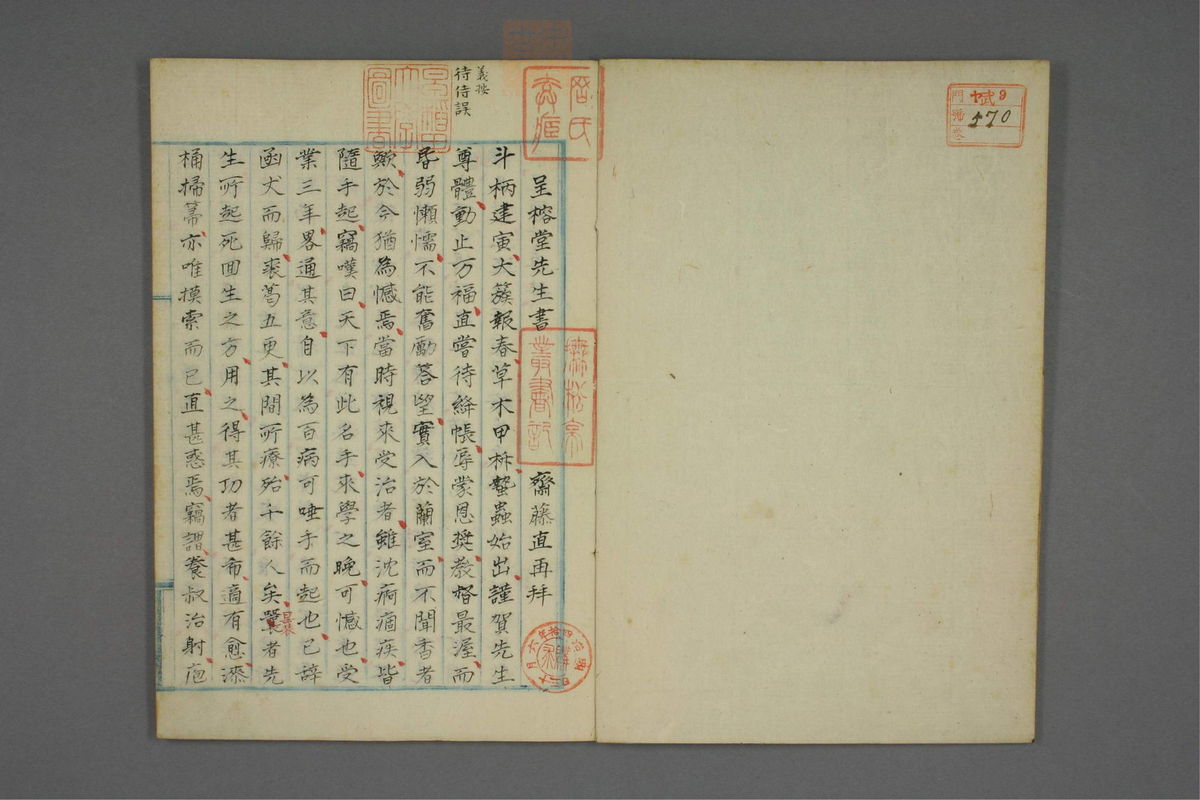 呈榕堂先生書
齋藤直再拜
斗柄建寅大簇報春草木甲柝蟄蟲始出謹賀先生
尊體動止万福直嘗待絳帳辱蒙恩奬教督最渥而
昏弱懶懦不能奮勵答望實入於蘭室而不聞香者
歟於今猶為憾焉當時視來受治者雖沈痾痼疾皆
隨手起竊嘆曰天下有此名手來學之晩可憾也受
業三年畧通其意自以為百病可唾手而起也已辞
函丈而歸裘葛五更其間所療殆千餘人矣曩者先
生所起死回生之方用之得其功者甚希適有愈漆
桶掃箒亦唯摸索而已直甚惑焉竊謂養叔治射庖
義按
待侍誤
門 號 卷
9
570